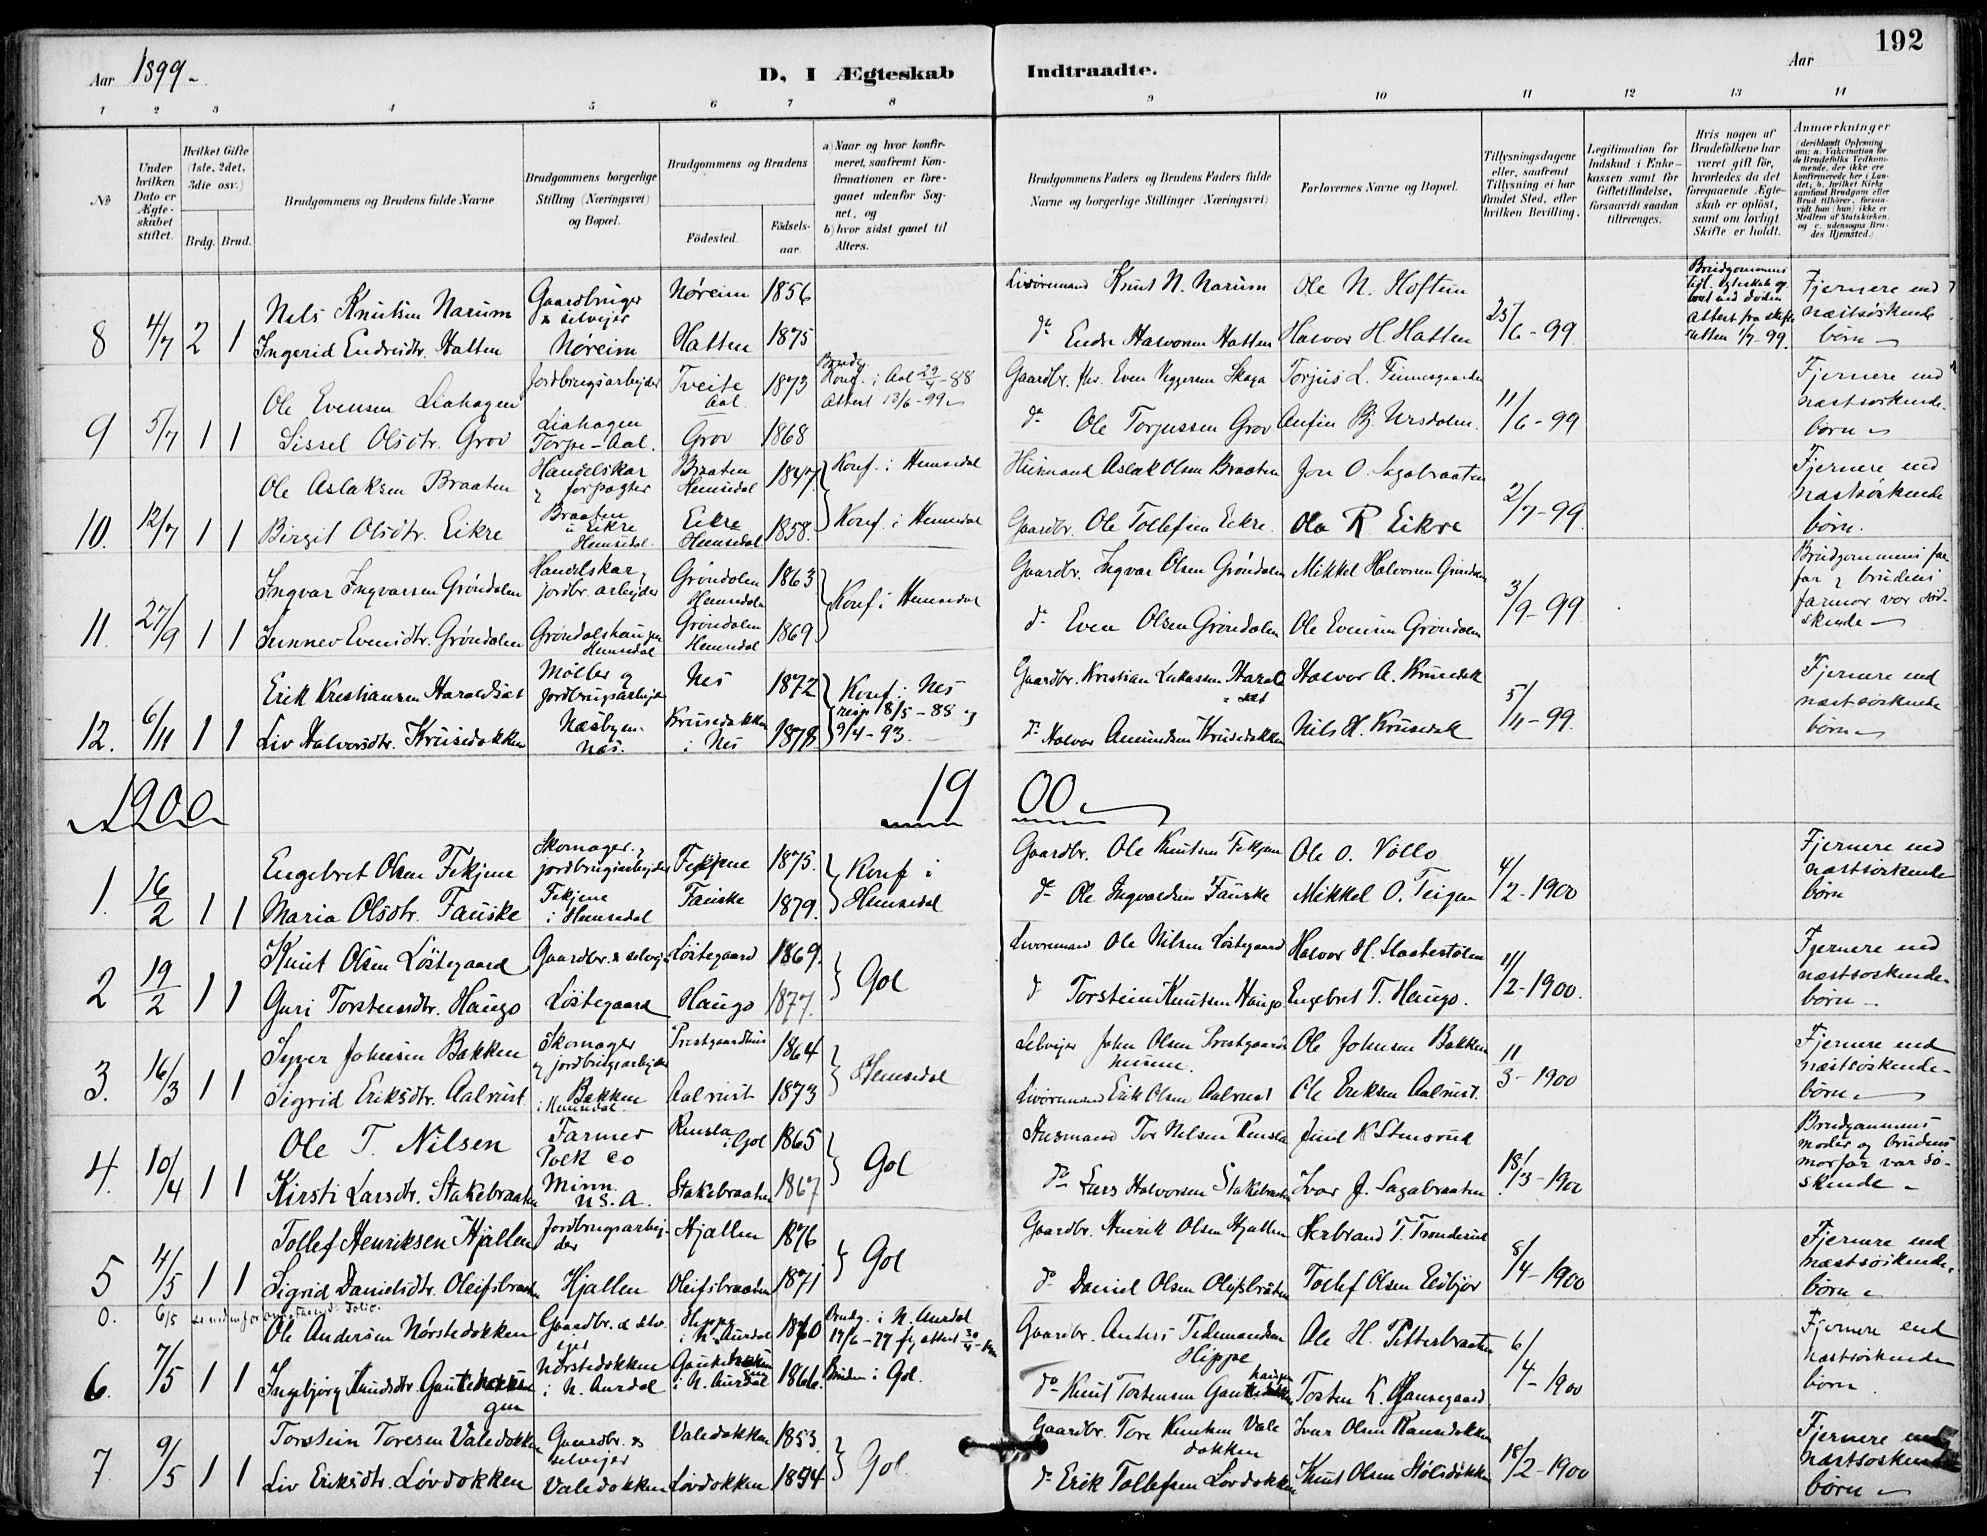 192
Aar 1899.
D, I Ægteskab Indtraadte.
Aar
1 2 3 4 5 6 7 8 9 10 11 12 13 14
№
Under hvilken Dato er Ægteskabet stiftet.
Hvilket Gifte (1ste, 2det, 3die osv.)
Brdg. Brud.
Brudgommens og Brudens fulde Navne
Brudgommens borgerlige Stilling (Næringsvei) og Bopæl.
Brudgommens og Brudens
Fødested.
Fødsels-aar.
a) Naar og hvor konfirmeret, saafremt Konfirmationen er foregaaet udenfor Sognet, og
b) hvor sidst gaaet til Alters.
Brudgommens Faders og Brudens Faders fulde Navne og borgerlige Stillinger (Næringsvei)
Forlovernes Navne og Bopæl.
Tillysningsdagene eller, saafremt Tillysning ei har fundet Sted, efter hvilken Bevilling.
Legitimation for Indskud i Enkekassen samt for Giftetilladelse, forsaavidt saadan tiltrænges.
Hvis nogen af Brudefolkene har været gift før, hvorledes da det foregaaende Ægteskab er opløst, samt om lovligt Skifte er holdt.
Anmærkninger (deriblandt Oplysning om: a. Vakcination for de Brudefolks Vedkommende, der ikke ere konfirmerede her i Landet; b. hvilket Kirkesamfund Brudgom eller Brud tilhører, forsaavidt han (hun) ikke er Medlem af Statskirken, og c. udensogns Brudes Hjemsted.)
8 4/7 2 1 Nils Knutsen Narum Gaardbruger & selvejer Nøreim 1856 Livøremand Knut N. Narum Ole N. Hoftun 25/6-99 Brudgommens Attest fra skifteretten 1/7-99. Fjernere end næstsøskende børn
Ingerid Endresdtr. Hatten Nøreim Hatten 1875 do Endre Halvorsen Hatten Halvor H. Hatten
9 5/7 1 1 Ole Evensen Liahagen Jordbrugsarbejder Tveite Aal 1873 Brudg. Konf. i Aal 29/4-88 Attest 13/6-99 Gaardbr. Even Veggersen Skaga Torjus L. Finnesgaarden 11/6-99 Fjernere end næstsøskendebørn
Sissel Olsdtr. Grov Liahagen Torpe-Aal. Grov 1868 do Ole Torjussen Grov Anfin Bj. Ursdalen.
10. 12/7 1 1 Ole Aslaksen Braaten Handelskar & forpagter Braaten Hemsedal 1847. Konf. i Hemsedal Husmand Aslak Olsen Braaten Jon O. Sagabraaten 2/7-99 Fjernere end næstsøskende børn.
Birgit Olsdtr. Eikre Braaten i Eikre Hemsedal. Eikre Hemsedal 1858. Konf. i Hemsedal Gaardbr. Ole Tollefsen Eikre. Ola R Eikre
11. 27/9 1 1 Ingvar Ingvarsen Grøndalen Handelskar, jordbr. arbejder Grøndalen Hemsedalen 1863 Konf i Hemsedal Gaardbr. Ingvar Olsen Grøndalen Mikkel Halvorsen Grøndalen 3/9-99 Brudgommens farfar & brudens farmor var søskende
Sunnev Evensdtr. Grøndalen Grøndalshaugen Hemsedal Grøndalen Hemsedal 1869 do Even Olsen Grøndalen Ole Evensen Grøndalen
12. 6/11 1 1 Erik Kristiansen Haraldset Møller og jordbrugsarbejder Nes 1872 Konf. i Nes resp. 18/5-88 og 9/4-93. Gaardbr. Kristian Lukassen Haraldset Halvor A. Krusedok 5/11-99. Fjernere end næstsøskende børn
Liv Halvorsdtr. Krusedokken Næsbyen Næs. Krusedokken i Nes 1878 do Halvor Amundsen Krusedokken Nils H. Krusedok
1900 1900
1. 16/2 1 1 Engebret Olsen Fekjene Skomager & jordbrugsarbejder Fekjene 1875. Konf i Hemsedal Gaardbr. Ole Knutsen Fekjene Ole O. Vøllo 4/2-1900 Fjernere end næstsøskende børn
Maria Olsdtr. Fauske Fekjene i Hemsedal Fauske 1879. do Ole Ingvaldsen Fauske Mikkel O. Teigen
2 19/2 1 1 Knut Olsen Løstegaard Gaardbr. & selvejer Løstegaard 1869. Gol Livøremand Ole Nilsen Løstegaard Halvor H. Slaatestølen 11/2-1900. Fjernere end næstsøskendebørn
Guri Torsteinsdtr. Haugo Løstegaard Haugo 1877. d Torstein Knutsen Haugo Engebret T. Haugo.
3. 16/3 1 1 Syver Johnsen Bakken Skomager & jordbrugsarbejder Prestgaardhus 1864 Hemsedal Selvejer John Olsen Prestgaardshusene. Ole Johnsen Bakken 11/3-1900 Fjernere end næstsøskendebørn
Sigrid Eriksdtr. Aalrust. Bakken i Hemsedal. Aalrust 1873 Livøremand Erik Olsen Aalrust Ole Eriksen Aalrust.
4. 10/4 1 1 Ole T. Nilsen Farmer Polk Co Rensla i Gol 1865 Gol Husmand Tor Nilsen Rensla K Stensrud 18/3-1900 Brudgommens moder og brudens morfar var søskende
Kirsti Larsdtr. Stakebraaten Minn. U.S.A. Stakebraaten 1867 do Lars Halvorsen Stakebraaten Ivar J. Sagabraaten
5 4/5 1 1 Tollef Henriksen Hjallen Jordbrugsarbejder Hjallen 1876 Gol Gaardbr. Henrik Olsen Hjallen Herbrand T. Tronderud 8/4-1900 Fjernere end næstsøskendebørn
Sigrid Danielsdtr. Oleifsbraaten Hjallen Oleifsbraaten 1871 do Daniel Olsen Olifsbraaten Tollef Olsen Eidbjør
0. 6/5
6. 7/5 1 1 Ole Andersen Nørstedokken Gaardbr. & selvejer Hippe i N. Aurdal 1870 Brudg. i N. Aurdal 17/6-77 attest 30/4 Gaardbr. Anders Tidemandsen Hippe Ole H. Petterbraaten 6/4-1900 Fjernere end næstsøskende børn
Ingebjørg Knudsdtr. Gautehaugen Nørstedokken i N. Aurdal i N. Aurdal 1866. Bruden i Gol. do Knut Torstensen Gautehaugen Tosten K.
7. 9/5 1 1 Torstein Toresen Valedokken Gaardbr. & selvejer Valedokken 1853. Gol. Gaardbr. Tore Knutsen Valedokken Ivar Olsen Ransedokken 18/2-1900 Fjernere end næstsøskende børn
Liv Eriksdtr. Løvdokken Valedokken Løvdokken 1854 do Erik Tollefsen Løvdokken Knut Olsen Hølsdokken